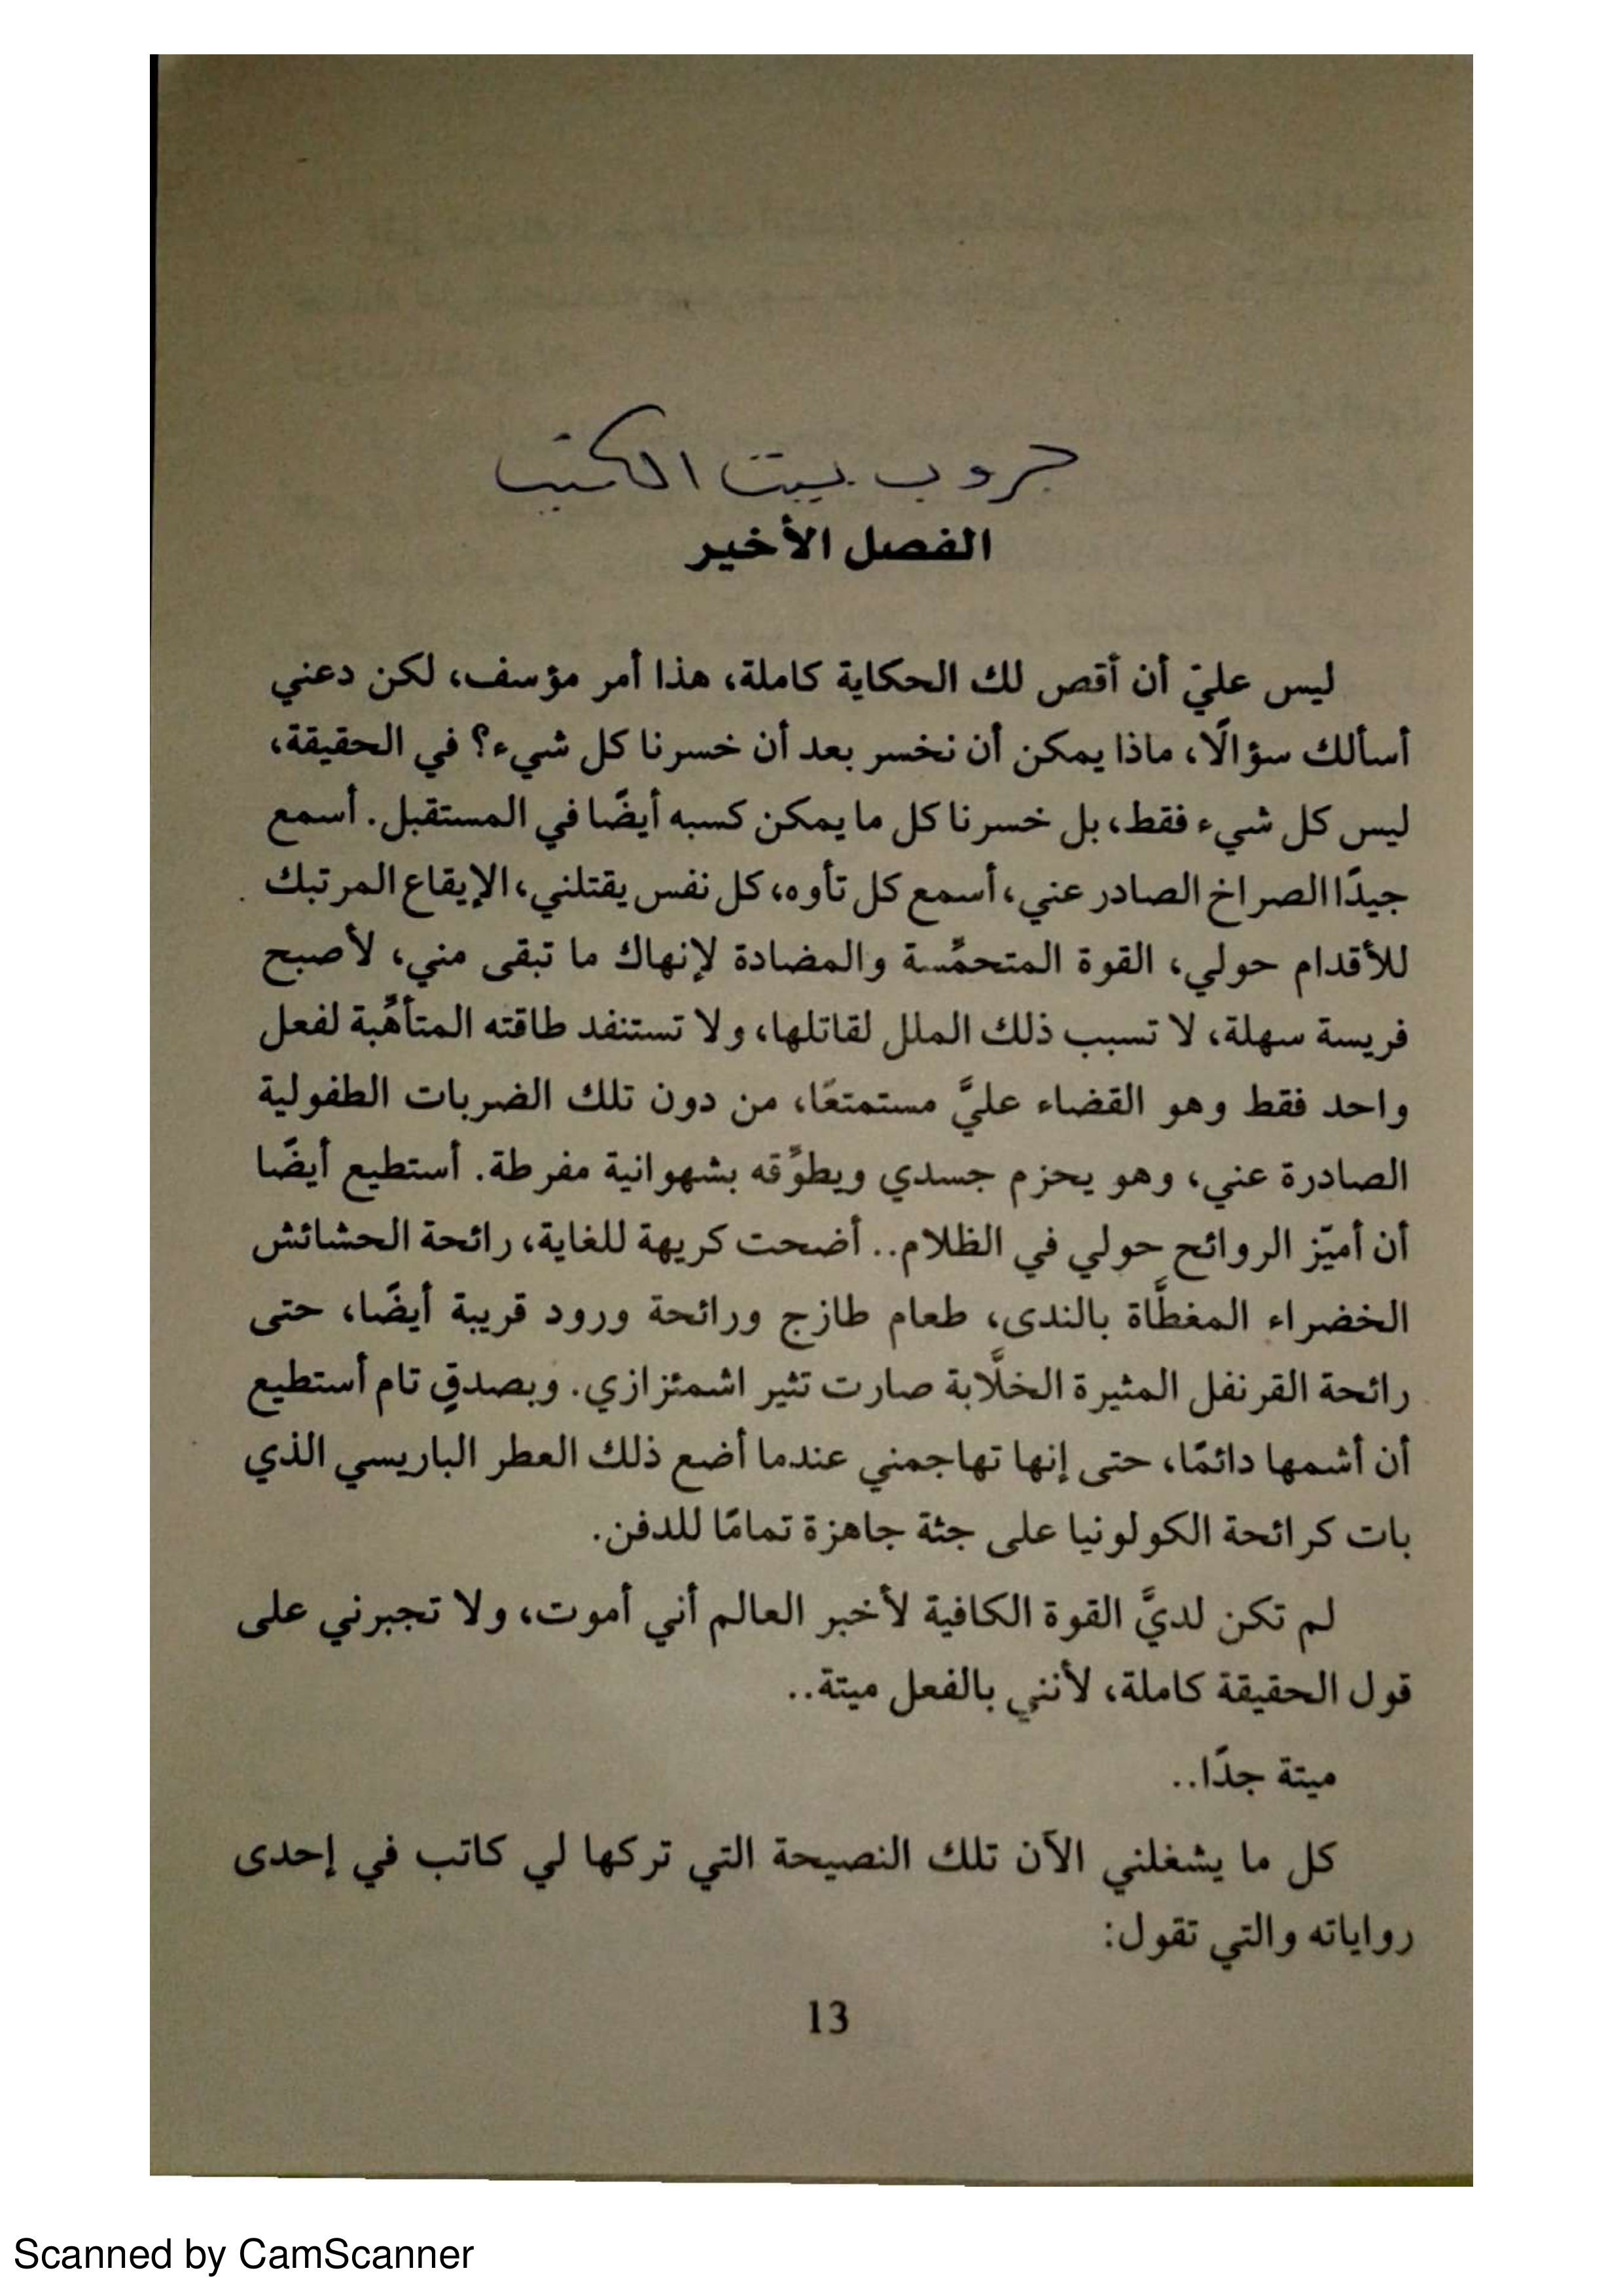 جروب بيت الكتب
الفصل الأخير
ليس عليّ أن أقص لك الحكاية كاملة، هذا أمر مؤسف، لكن دعني
أسألك سؤالًا، ماذا يمكن أن نخسر بعد أن خسرنا كل شيء؟ في الحقيقة،
ليس كل شيء فقط، بل خسرنا كل ما يمكن كسبه أيضًا في المستقبل. أسمع
جيدًا الصراخ الصادر عني، أسمع كل تأوه، كل نفس يقتلني، الإيقاع المرتبك
للأقدام حولي، القوة المتحمِّسة والمضادة لإنهاك ما تبقى مني، لأصبح
فريسة سهلة، لا تسبب ذلك الملل لقاتلها، ولا تستنفد طاقته المتأهِّبة لفعل
واحد فقط وهو القضاء عليَّ مستمتعًا، من دون تلك الضربات الطفولية
الصادرة عني، وهو يحزم جسدي ويطوِّقه بشهوانية مفرطة. أستطيع أيضًا
أن أميّز الروائح حولي في الظلام.. أضحت كريهة للغاية، رائحة الحشائش
الخضراء المغطَّاة بالندى، طعام طازج ورائحة ورود قريبة أيضًا، حتى
رائحة القرنفل المثيرة الخلَّابة صارت تثير اشمئزازي. وبصدقٍ تام أستطيع
أن أشمها دائمًا، حتى إنها تهاجمني عندما أضع ذلك العطر الباريسي الذي
بات كرائحة الكولونيا على جثة جاهزة تمامًا للدفن.
لم تكن لديَّ القوة الكافية لأخبر العالم أني أموت، ولا تجبرني على
قول الحقيقة كاملة، لأنني بالفعل ميتة..
ميتة جدًا..
كل ما يشغلني الآن تلك النصيحة التي تركها لي كاتب في إحدى
رواياته والتي تقول:
13
Scanned by CamScanner